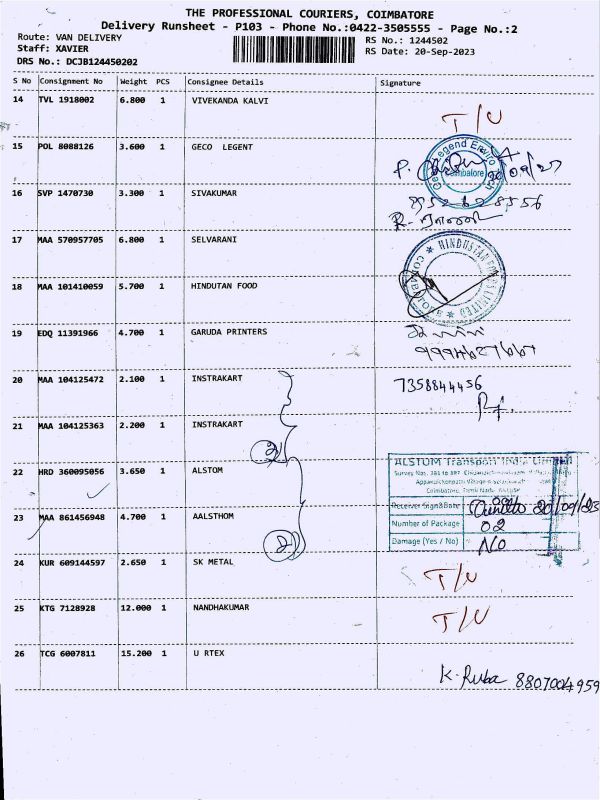 THE PROFESSIONAL COURIERS, COIMBATORE
Delivery Runsheet - P103 - Phone No.:0422-3505555 - Page No.:2
Route: VAN DELIVERY
RS No.: 1244502
Staff: XAVIER
RS Date: 20-Sep-2023
DRS No.: DCJB124450202
S No Consignment No Weight PCS Consignee Details Signature
14 TVL 1918002 6.800 1 VIVEKANDA KALVI
T/U
15 POL 8088126 3.600 1 GECO LEGENT
Coimbatore
16 SVP 1470730 3.300 1 SIVAKUMAR
17 MAA 570957705 6.800 1 SELVARANI
HINDUSTAN LIMITED
COIMBATORE
18 MAA 101410059 5.700 1 HINDUTAN FOOD
19 EDQ 11391966 4.700 1 GARUDA PRINTERS
20 MAA 104125472 2.100 1 INSTRAKART
7358844456
21 MAA 104125363 2.200 1 INSTRAKART
2
22 HRD 360095056 3.650 1 ALSTOM
ALSTOM Transport India Limited
Coimbatore, Tamil Nadu
Receiver Sign&Date 20/09/23
23 MAA 861456948 4.700 1 AALSTHOM
Number of Package 02
2
Damage (Yes / No) No
24 KUR 609144597 2.650 1 SK METAL
T/U
25 KTG 7128928 12.000 1 NANDHAKUMAR
T/U
26 TCG 6007811 15.200 1 U RTEX
K. Ruba 8807004959